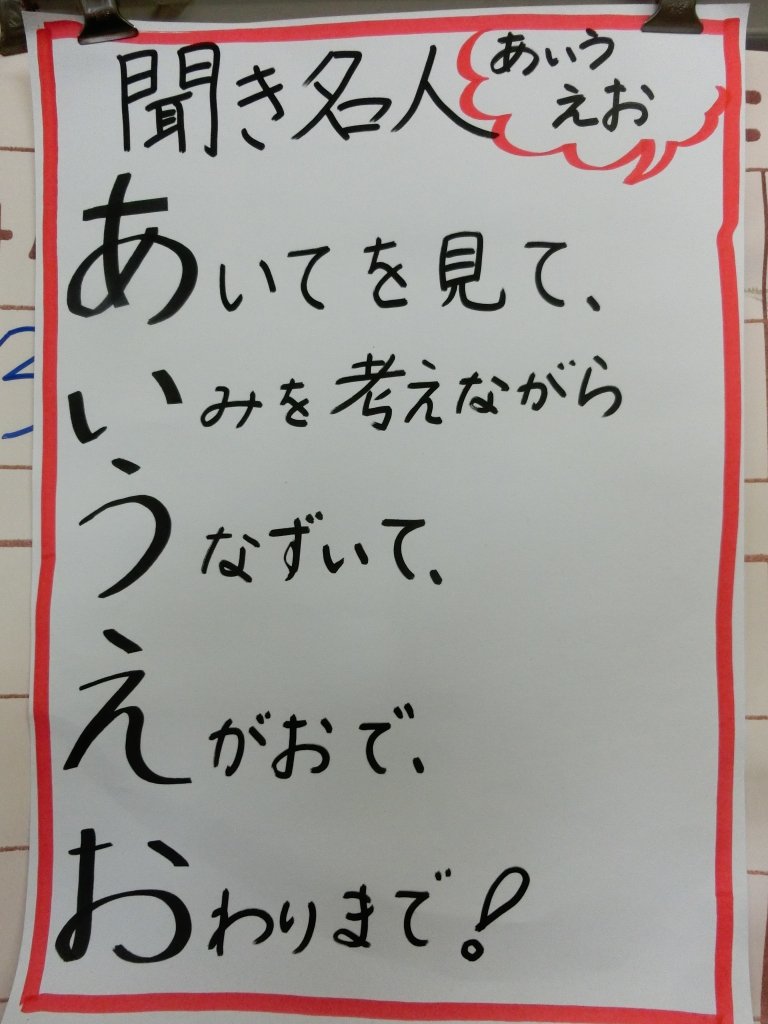 聞き名人
あいう
えお
あいてを見て、
いみを考えながら
うなずいて、
えがおで、
おわりまで!